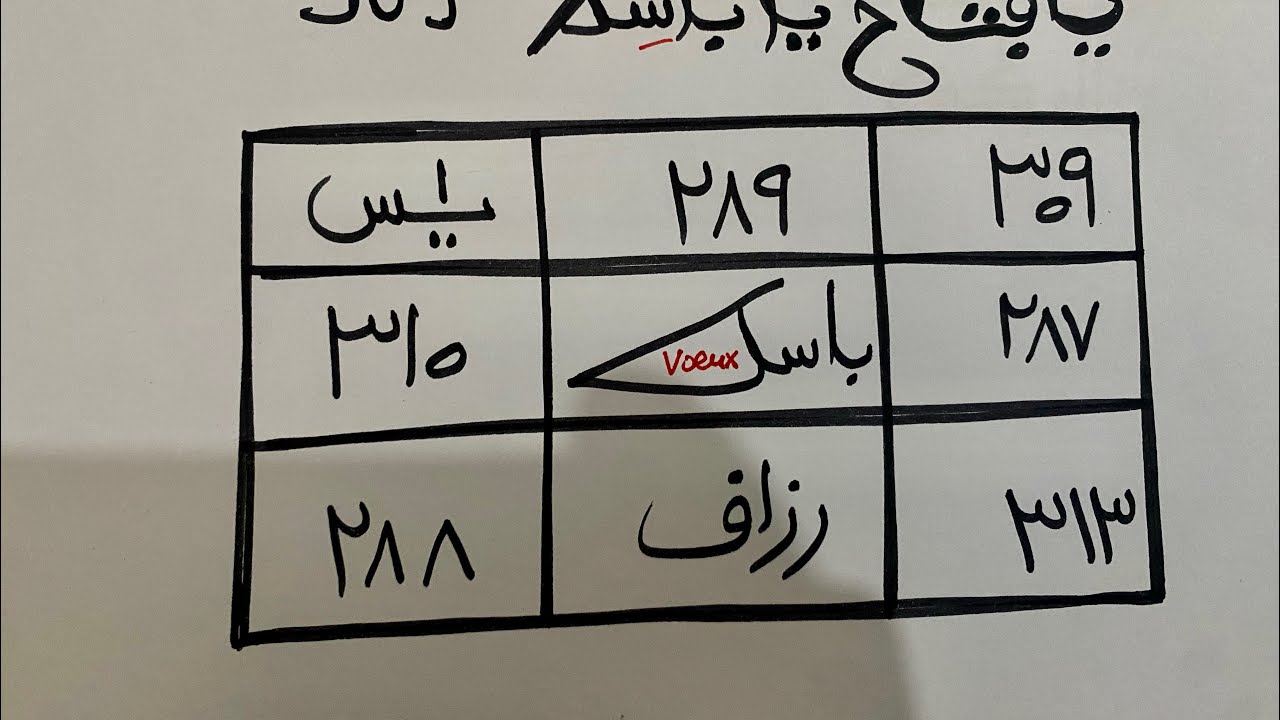 يا فتاح يا باسط
٣٠٩ ٢٨٩ يٰس
٢٨٧ باسط Voeux ٣١٠
٣١٣ رزاق ٢٨٨